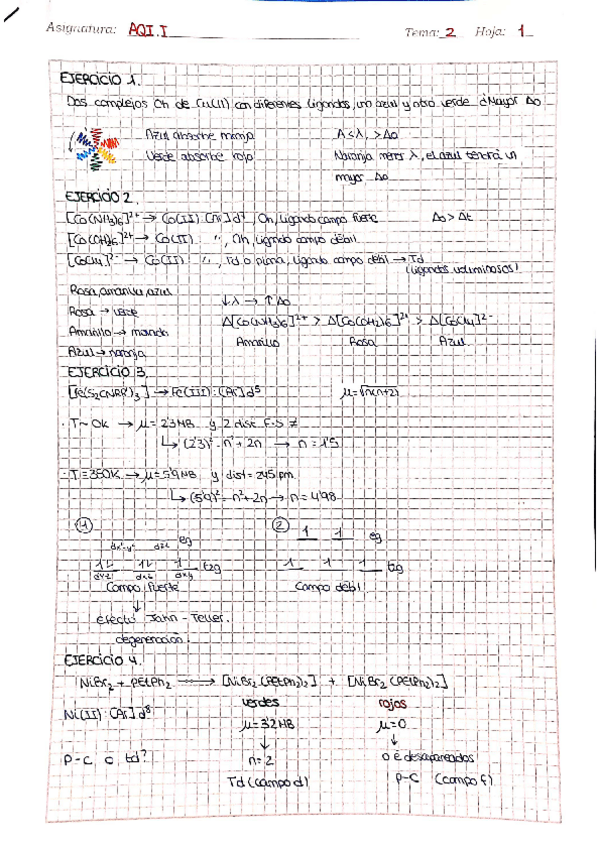 Asignatura: AQI.I Tema: 2 Hoja: 1
EJERCICIO 1.
Dos complejos Oh de Cu(II) con diferentes ligandos, un azul y otro verde ¿Mayor Δo
Azul absorbe naranja A<λ, >Δo
Verde absorbe rojo Naranja menos λ, el azul tendrá un
mayor Δo
EJERCICIO 2.
[Co(NH3)6]2+ → Co(II): [Ar]d7, Oh, ligando campo fuerte Δo > Δt
[Co(OH2)6]2+ → Co(II) ", Oh, ligando campo débil
[CoCl4]2- → Co(II) ", Td o plana, ligando campo débil → Td
(ligandos voluminosos)
Rosa, amarilla, azul
Rosa → verde ↓λ → ↑Δo
Amarillo → morado Δ[Co(NH3)6]2+ > Δ[Co(OH2)6]2+ > Δ[CoCl4]2-
Azul → naranja Amarillo Rosa Azul
EJERCICIO 3.
[Fe(S2CNRR')3] → Fe(III): [Ar]d5 μ=√n(n+2)
· T~0K → μ=2'3MB y 2 dist F-S ≠
↳ (2'3)² = n²+2n → n=1'5
· T=350K → μ=5'9MB y dist=245 pm.
↳ (5'9)² = n²+2n → n=4'98
① ②
dx²-y² dz² eg 1 1 eg
1↓ 1↓ 1 t2g 1 1 1 t2g
dyz dxz dxy
Campo fuerte Campo débil
↓
efecto Jahn-Teller.
degeneración.
EJERCICIO 4.
NiBr2 + PEtPh2 → [NiBr2(PEtPh2)2] + [NiBr2(PEtPh2)2]
verdes rojos
Ni(II): [Ar]d8 μ=3'2MB μ=0
↓ ↓
P-C o td? n=2 0 é desapareados
Td (campo d) P-C (campo f)